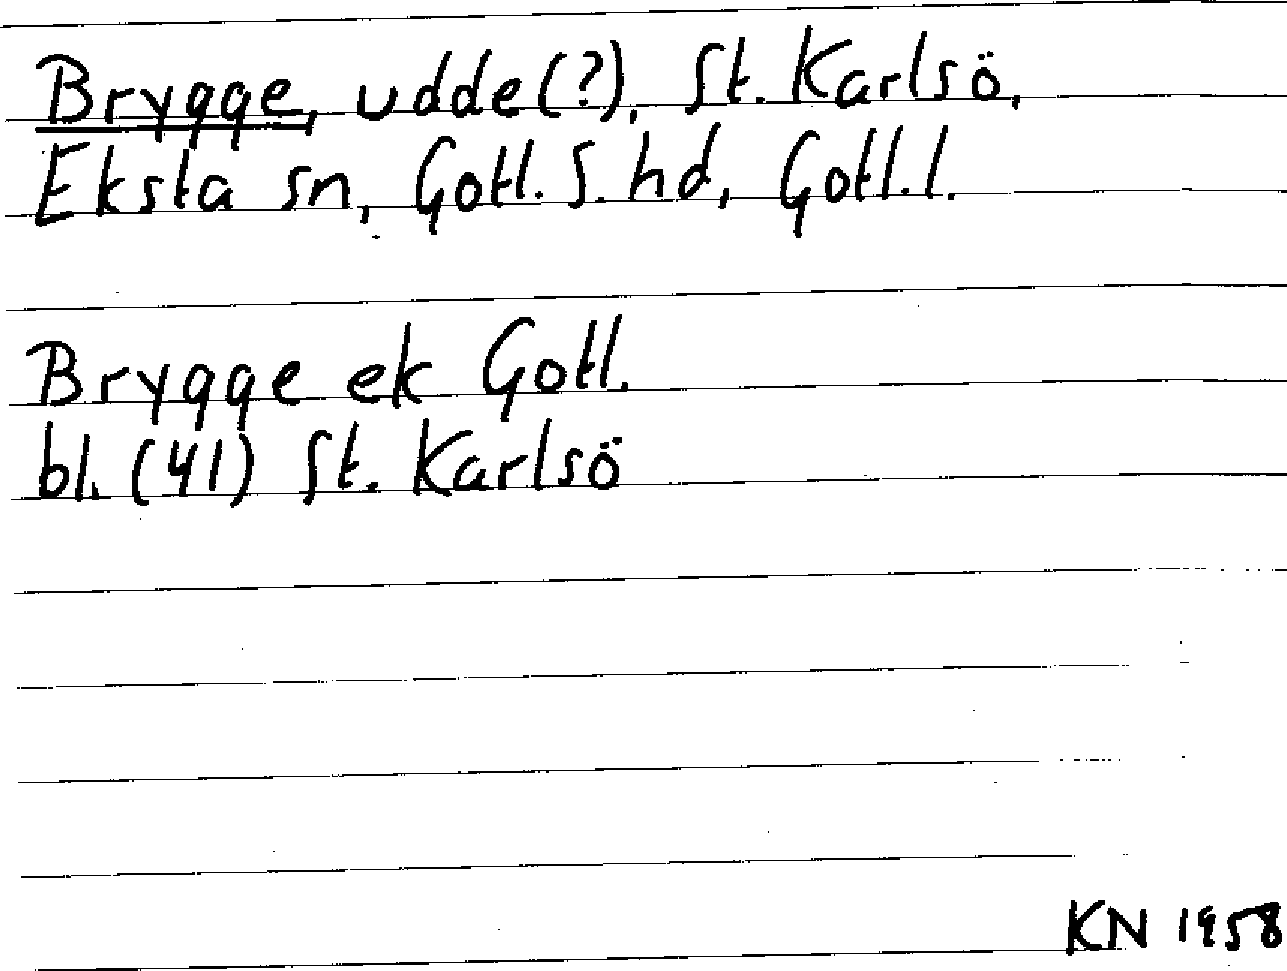 Brygge, udde(?), St. Karlsö,
Eksta sn, Gotl. S. hd, Gotl. l.
Brygge ek Gotl.
bl. (41) St. Karlsö
KN 1958